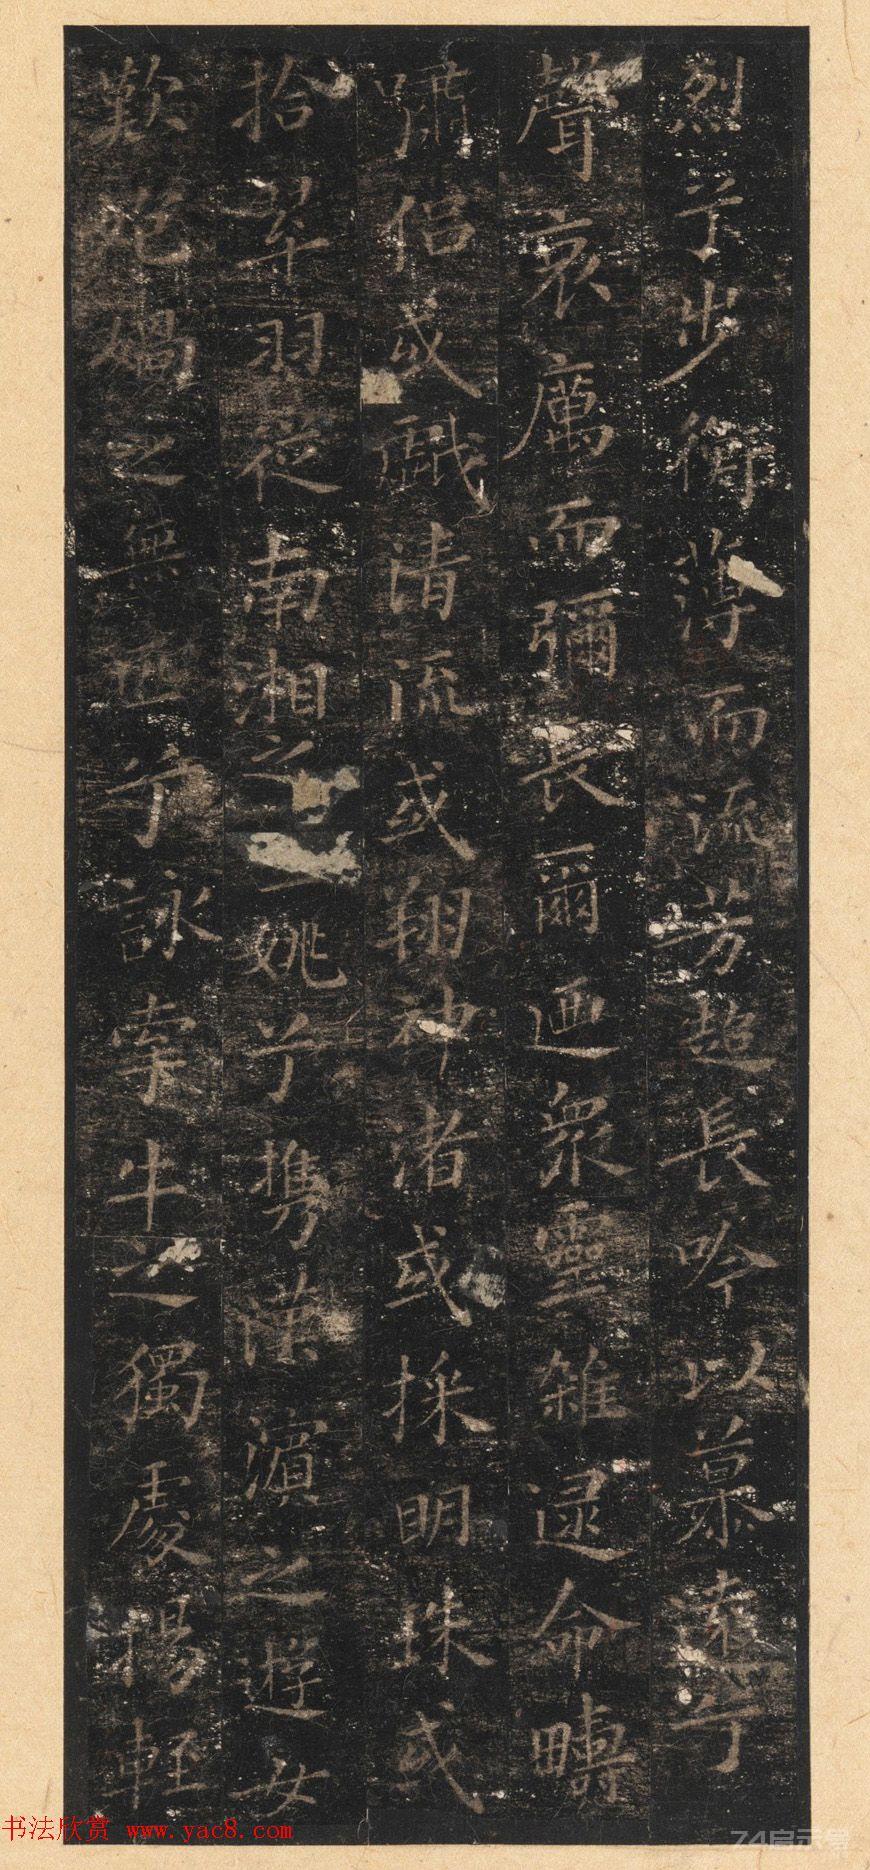 烈兮步衡薄而流芳超長吟以慕遠兮
聲哀厲而彌長爾迺眾靈雜遝命疇
嘯侶或戲清流或翔神渚或採明珠或
拾翠羽從南湘之二姚兮携漢濱之遊女
歎匏媧之無匹兮詠牽牛之獨處揚輕
书法欣赏 www.yac8.com